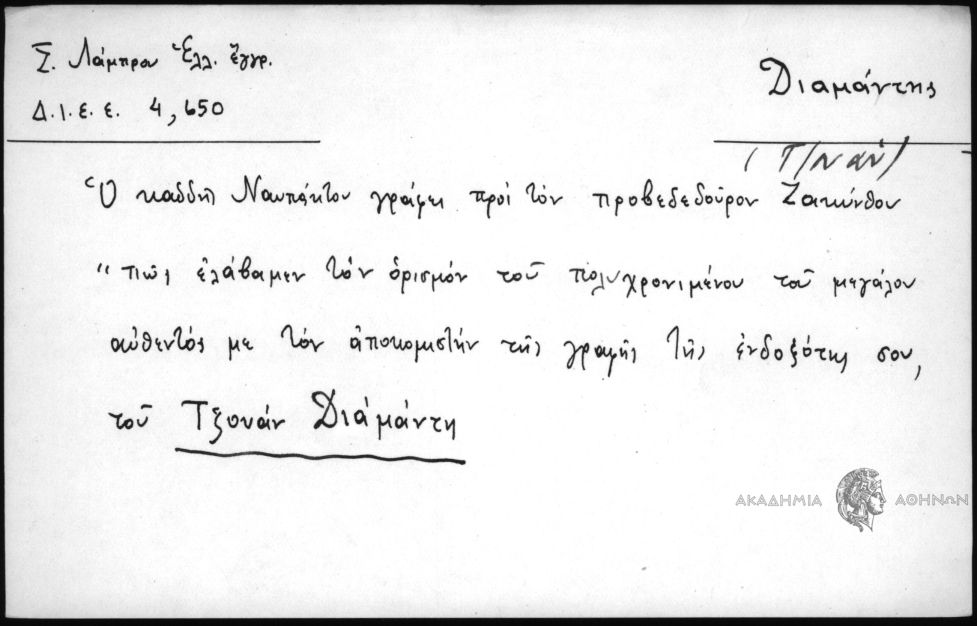 Σ. Λάμπρου Ἑλλ. ἔγγρ.
Δ.Ι.Ε.Ε. 4, 650
Διαμάντης
Ὁ καδδῆς Ναυπάκτου γράφει πρὸς τὸν προβεδεδοῦρον Ζακύνθου
"πῶς ἐλάβαμεν τὸν ὁρισμόν τοῦ πολυχρονιμένου τοῦ μεγάλου
αὐθεντός με τὸν ἀποκομιστήν τῆς γραφῆς τῆς ἐνδοξότης σου,
τοῦ Τζουάν Διαμάντη
ΑΚΑΔΗΜΙΑ ΑΘΗΝΩΝ